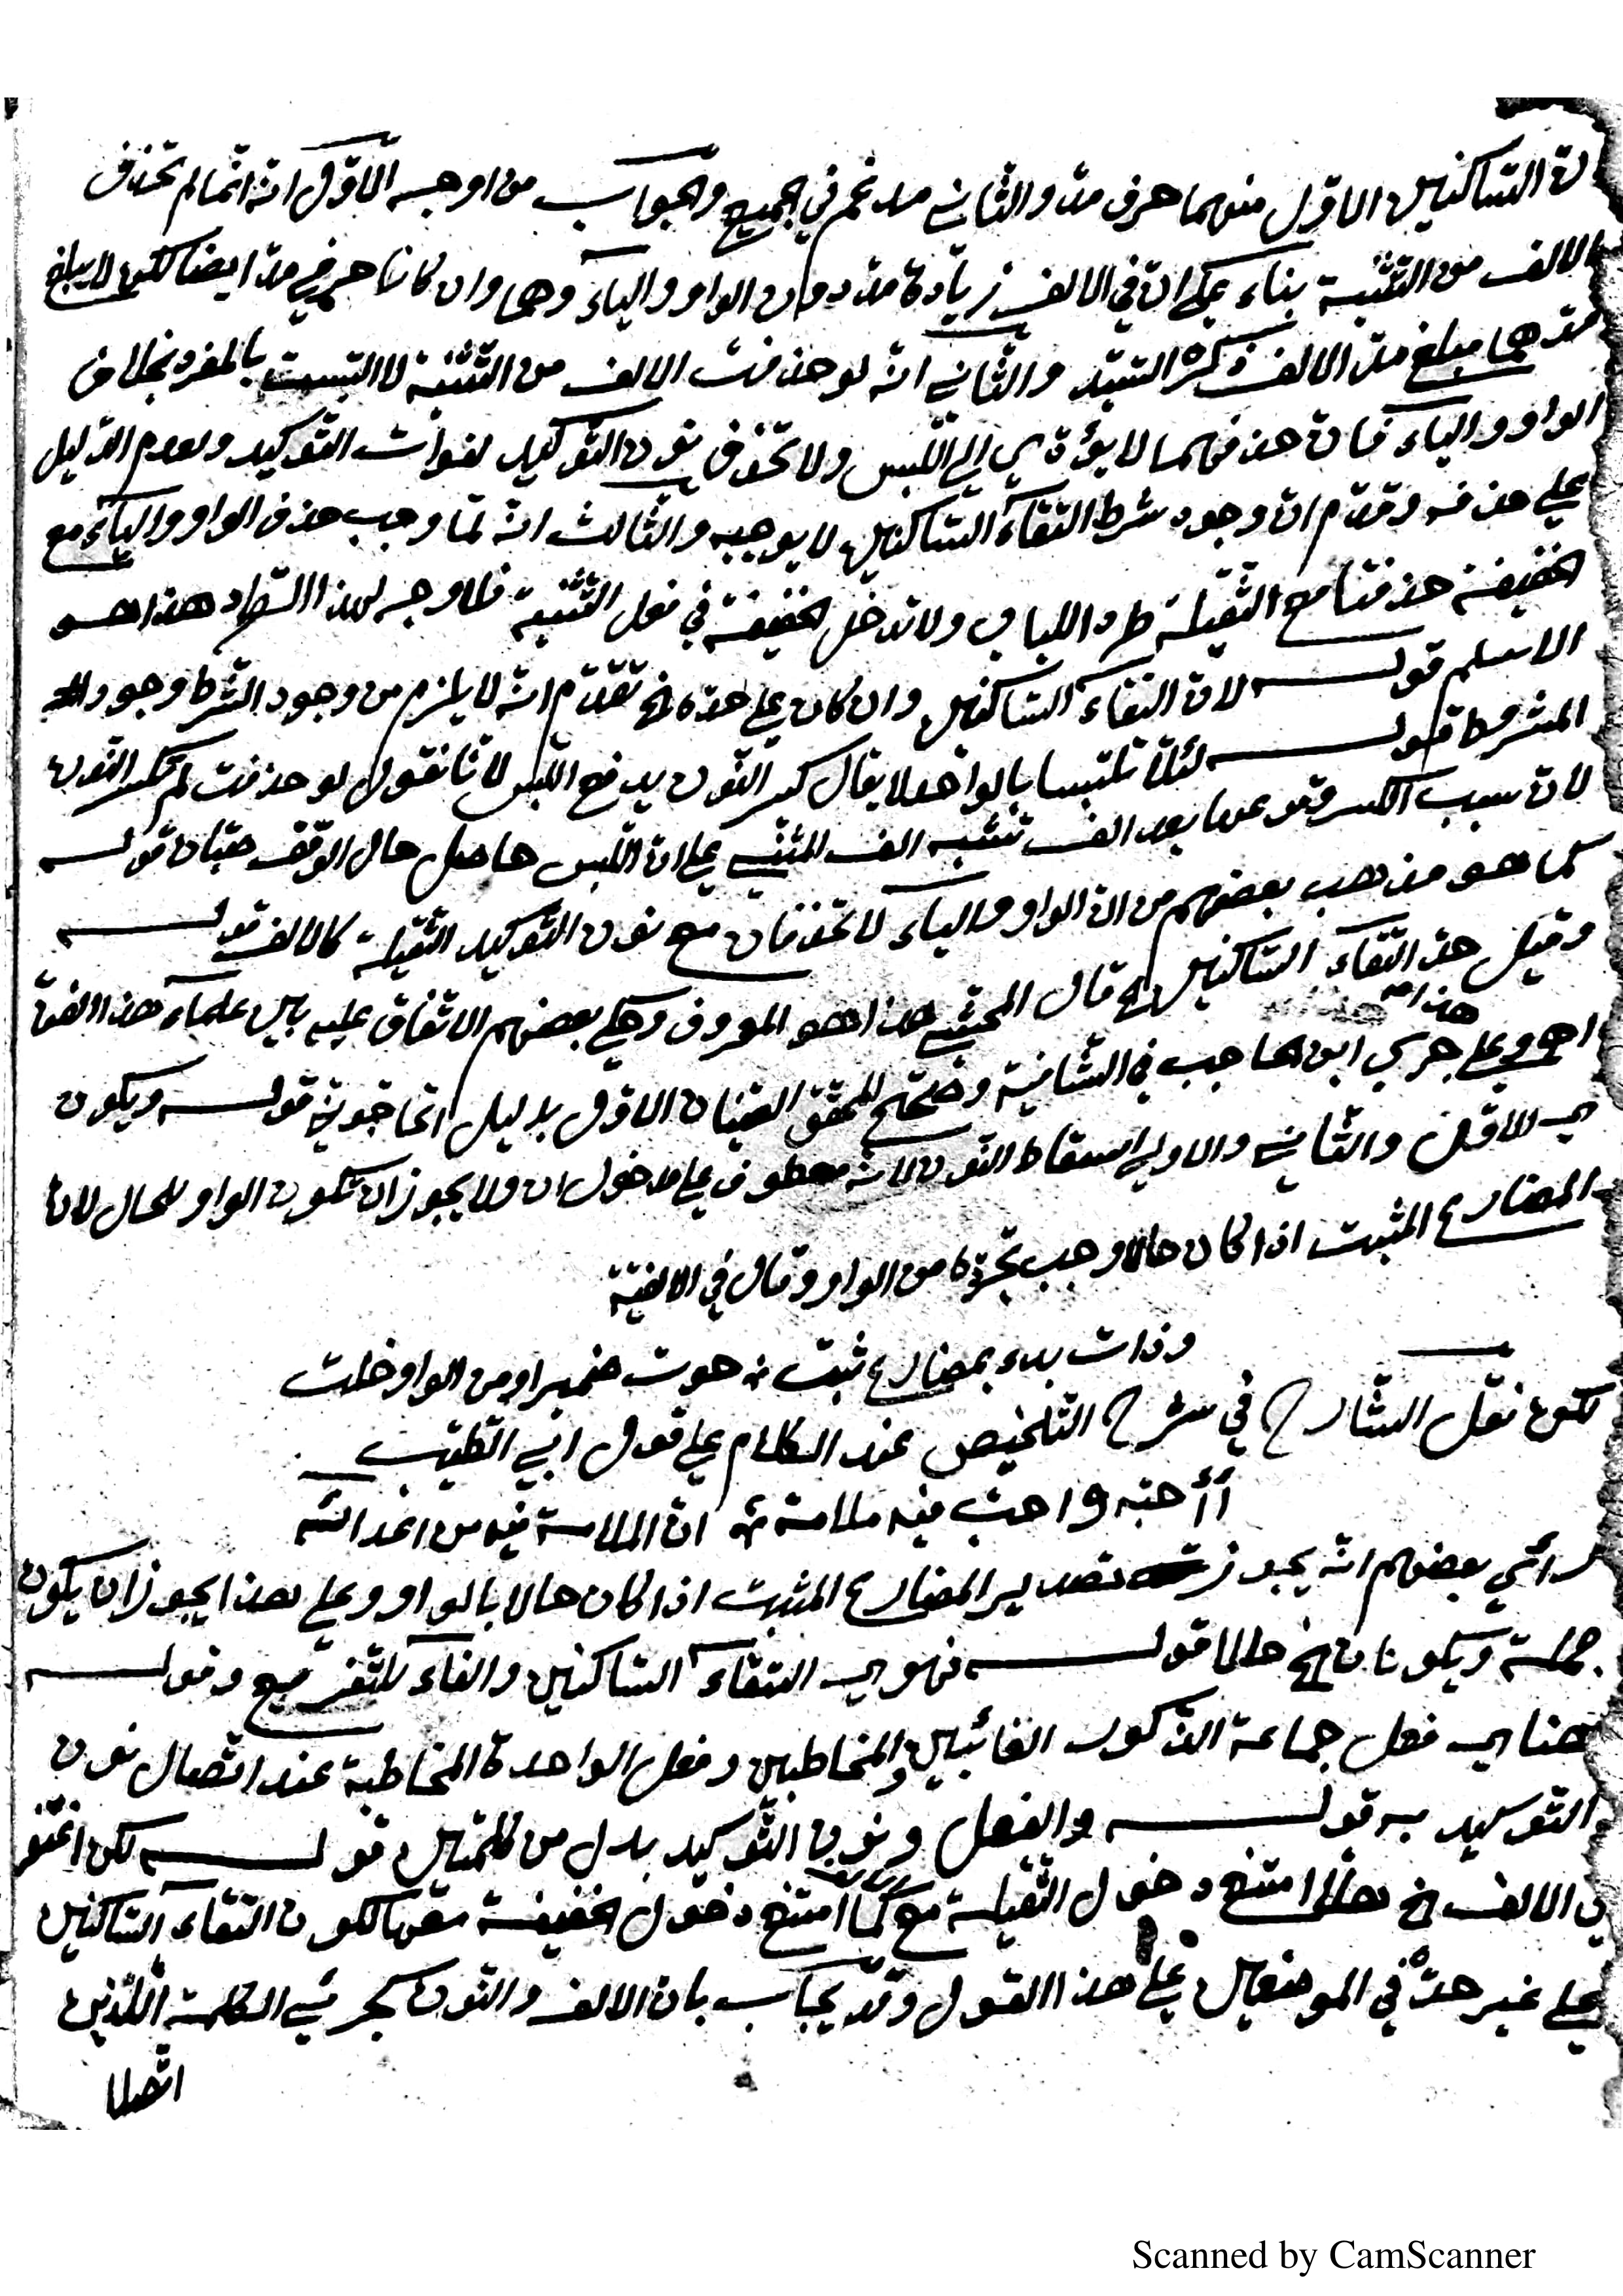 لان الساكنين الاول منهما حرف مد والثاني مدغم في الجميع والجواب من اوجه الاول انه انما لم تحذف
الالف من التثنية بناء على ان في الالف زيادة مد دون الواو والياء وهما وان كانا حرفي مد ايضا لكن لا يبلغ
مدهما مبلغ مد الالف ذكره السيد والثاني انه لو حذفت الالف من التثنية لالتبست بالمفرد بخلاف
الواو والياء فان حذفهما لا يؤدي الى اللبس ولا تحذف نون التوكيد لفوات التوكيد ولعدم الدليل
على حذفه وقدم ان وجود شرط التقاء الساكنين لا يوجبه والثالث انه لما وجب حذف الواو والياء مع
الخفيفة حذفتا مع الثقيلة طردا للباب ولا تدخل الخفيفة في فعل التثنية فلا وجه لهذا الطرد هذا هو
الاسلم قوله لان التقاء الساكنين وان كان على حده الخ تقدم انه لا يلزم من وجود الشرط وجود
المشروط قوله لئلا تلتبسا بالواحد لا يقال كسر النون يدفع اللبس لانا نقول لو حذفت لم تكسر النون
لان سبب الكسر وقوعها بعد الف تشبه الف المثنى على ان اللبس حاصل حال الوقف حتبان قوله
كما هو مذهب بعضهم من ان الواو والياء لا تحذفان مع نون التوكيد الثقيلة كالالف قوله
وقيل حد التقاء الساكنين الخ قال المحشي هذا هو المعروف وحكي بعضهم الاتفاق عليه بين علماء هذا الفن
هذا
اهـ وعلى جري ابن الحاجب في الشافية وصحح المحقق الصبان الاول بدليل اتحاجوني قوله ويكون
اي الاول والثاني والاولى اسقاط النون لانه معطوف على مدخول ان ولا يجوز ان تكون الواو للحال لان
المضارع المثبت اذا كان حالا وجب تجرده من الواو وقال في الالفية
وذات بدء بمضارع ثبت حوت ضميرا ومن الواو خلت
لكن نقل الشارح في شرح التلخيص عند الكلام على قول ابي الطيب
أأحبه واحب فيه ملامة ان الملامة فيه من اعدائه
رأي بعضهم انه يجوز تصدير المضارع المثبت اذا كان حالا بالواو وعلى هذا يجوز ان يكون
جملة ويكونان الخ حالا قوله فهو اي التقاء الساكنين والفاء للتفريع وقوله
هنا اي فعل جماعة الذكور الغائبين والمخاطبين وفعل الواحدة المخاطبة عند اتصال نون
التوكيد به قوله والفعل ونون التوكيد بدل من كلمتين قوله لكن اغتفر
في الالف الخ هلا امتنع دخول الثقيلة مع كما امتنع دخول الخفيفة معها لكون التقاء الساكنين
على غير حده في الموضعين على هذا القول وقد يجاب بان الالف والنون كجزئي الكلمة اللذين
اتصلا
Scanned by CamScanner